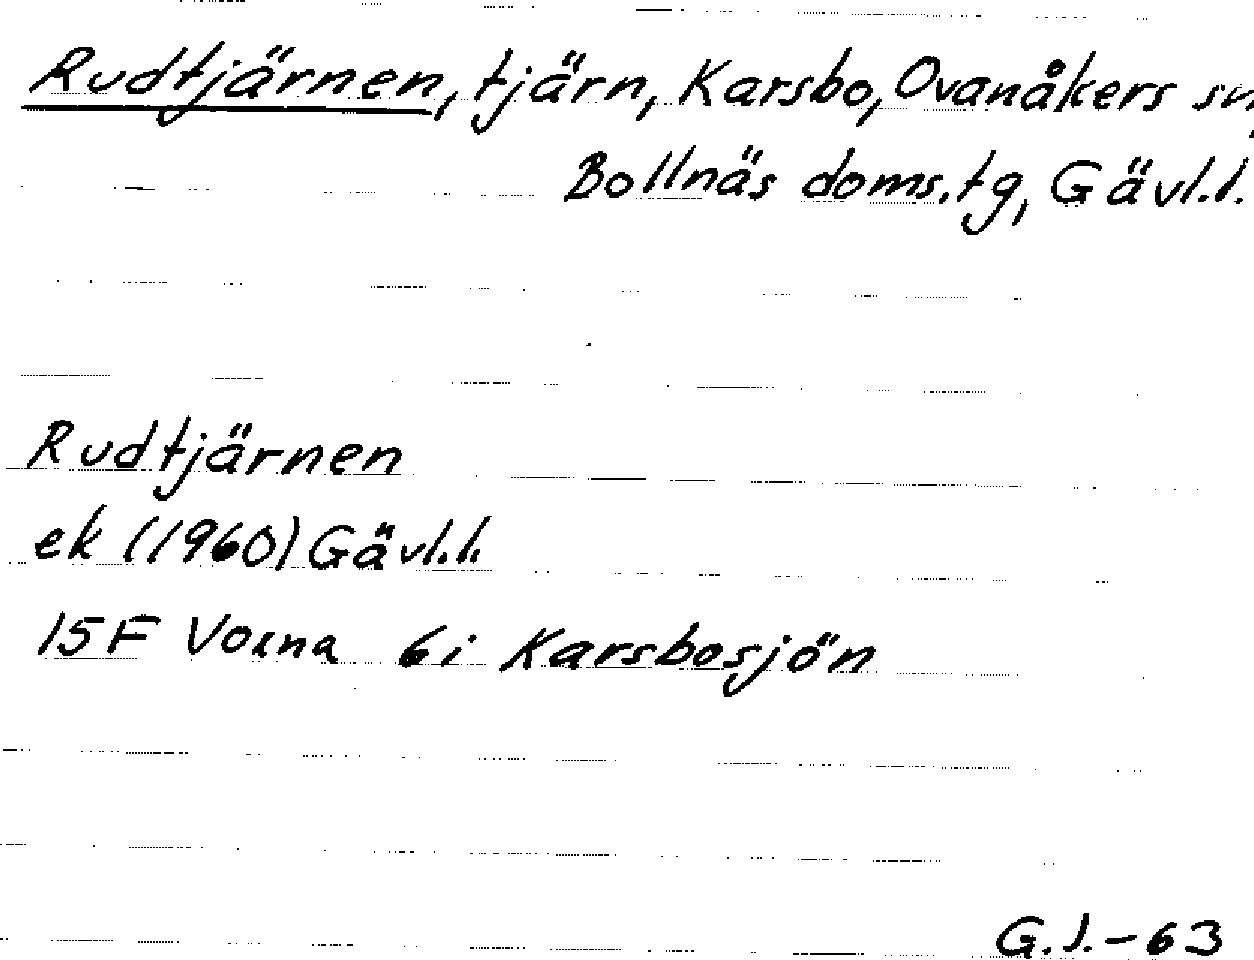 Rudtjärnen, tjärn, Karsbo, Ovanåkers sn,
Bollnäs doms.tg, Gävl.l.
Rudtjärnen
ek (1960) Gävl.l.
15F Voxna 6i Karsbosjön
G.J.-63